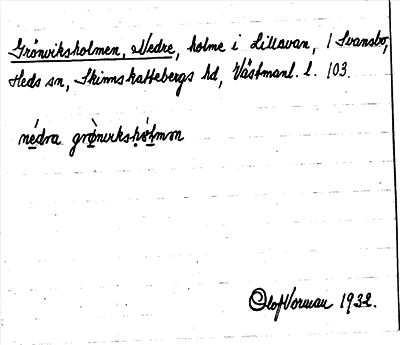 Grönviksholmen, Nedre, holme i Lillavan, / Svansbo,
Heds sn, Skinnskattebergs hd, Västmanl. l. 103.
nédra grø̀nviksho̩l̩mən
Olof Vorman 1932.